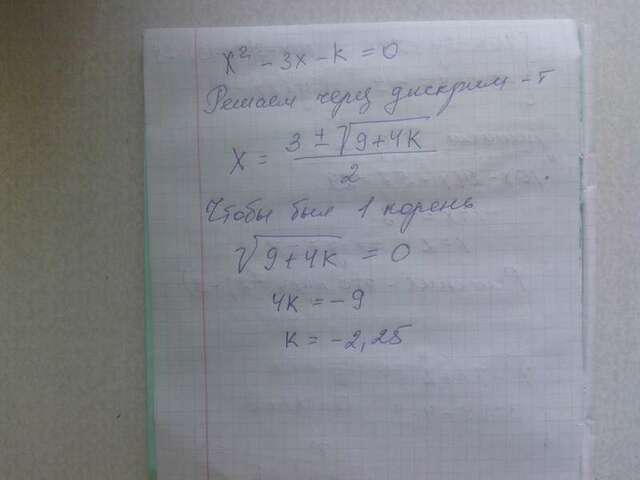 x² - 3x - k = 0
Решаем через дискрим-т
x = (3 ± √(9+4k)) / 2
Чтобы был 1 корень
√(9+4k) = 0
4k = -9
k = -2,25